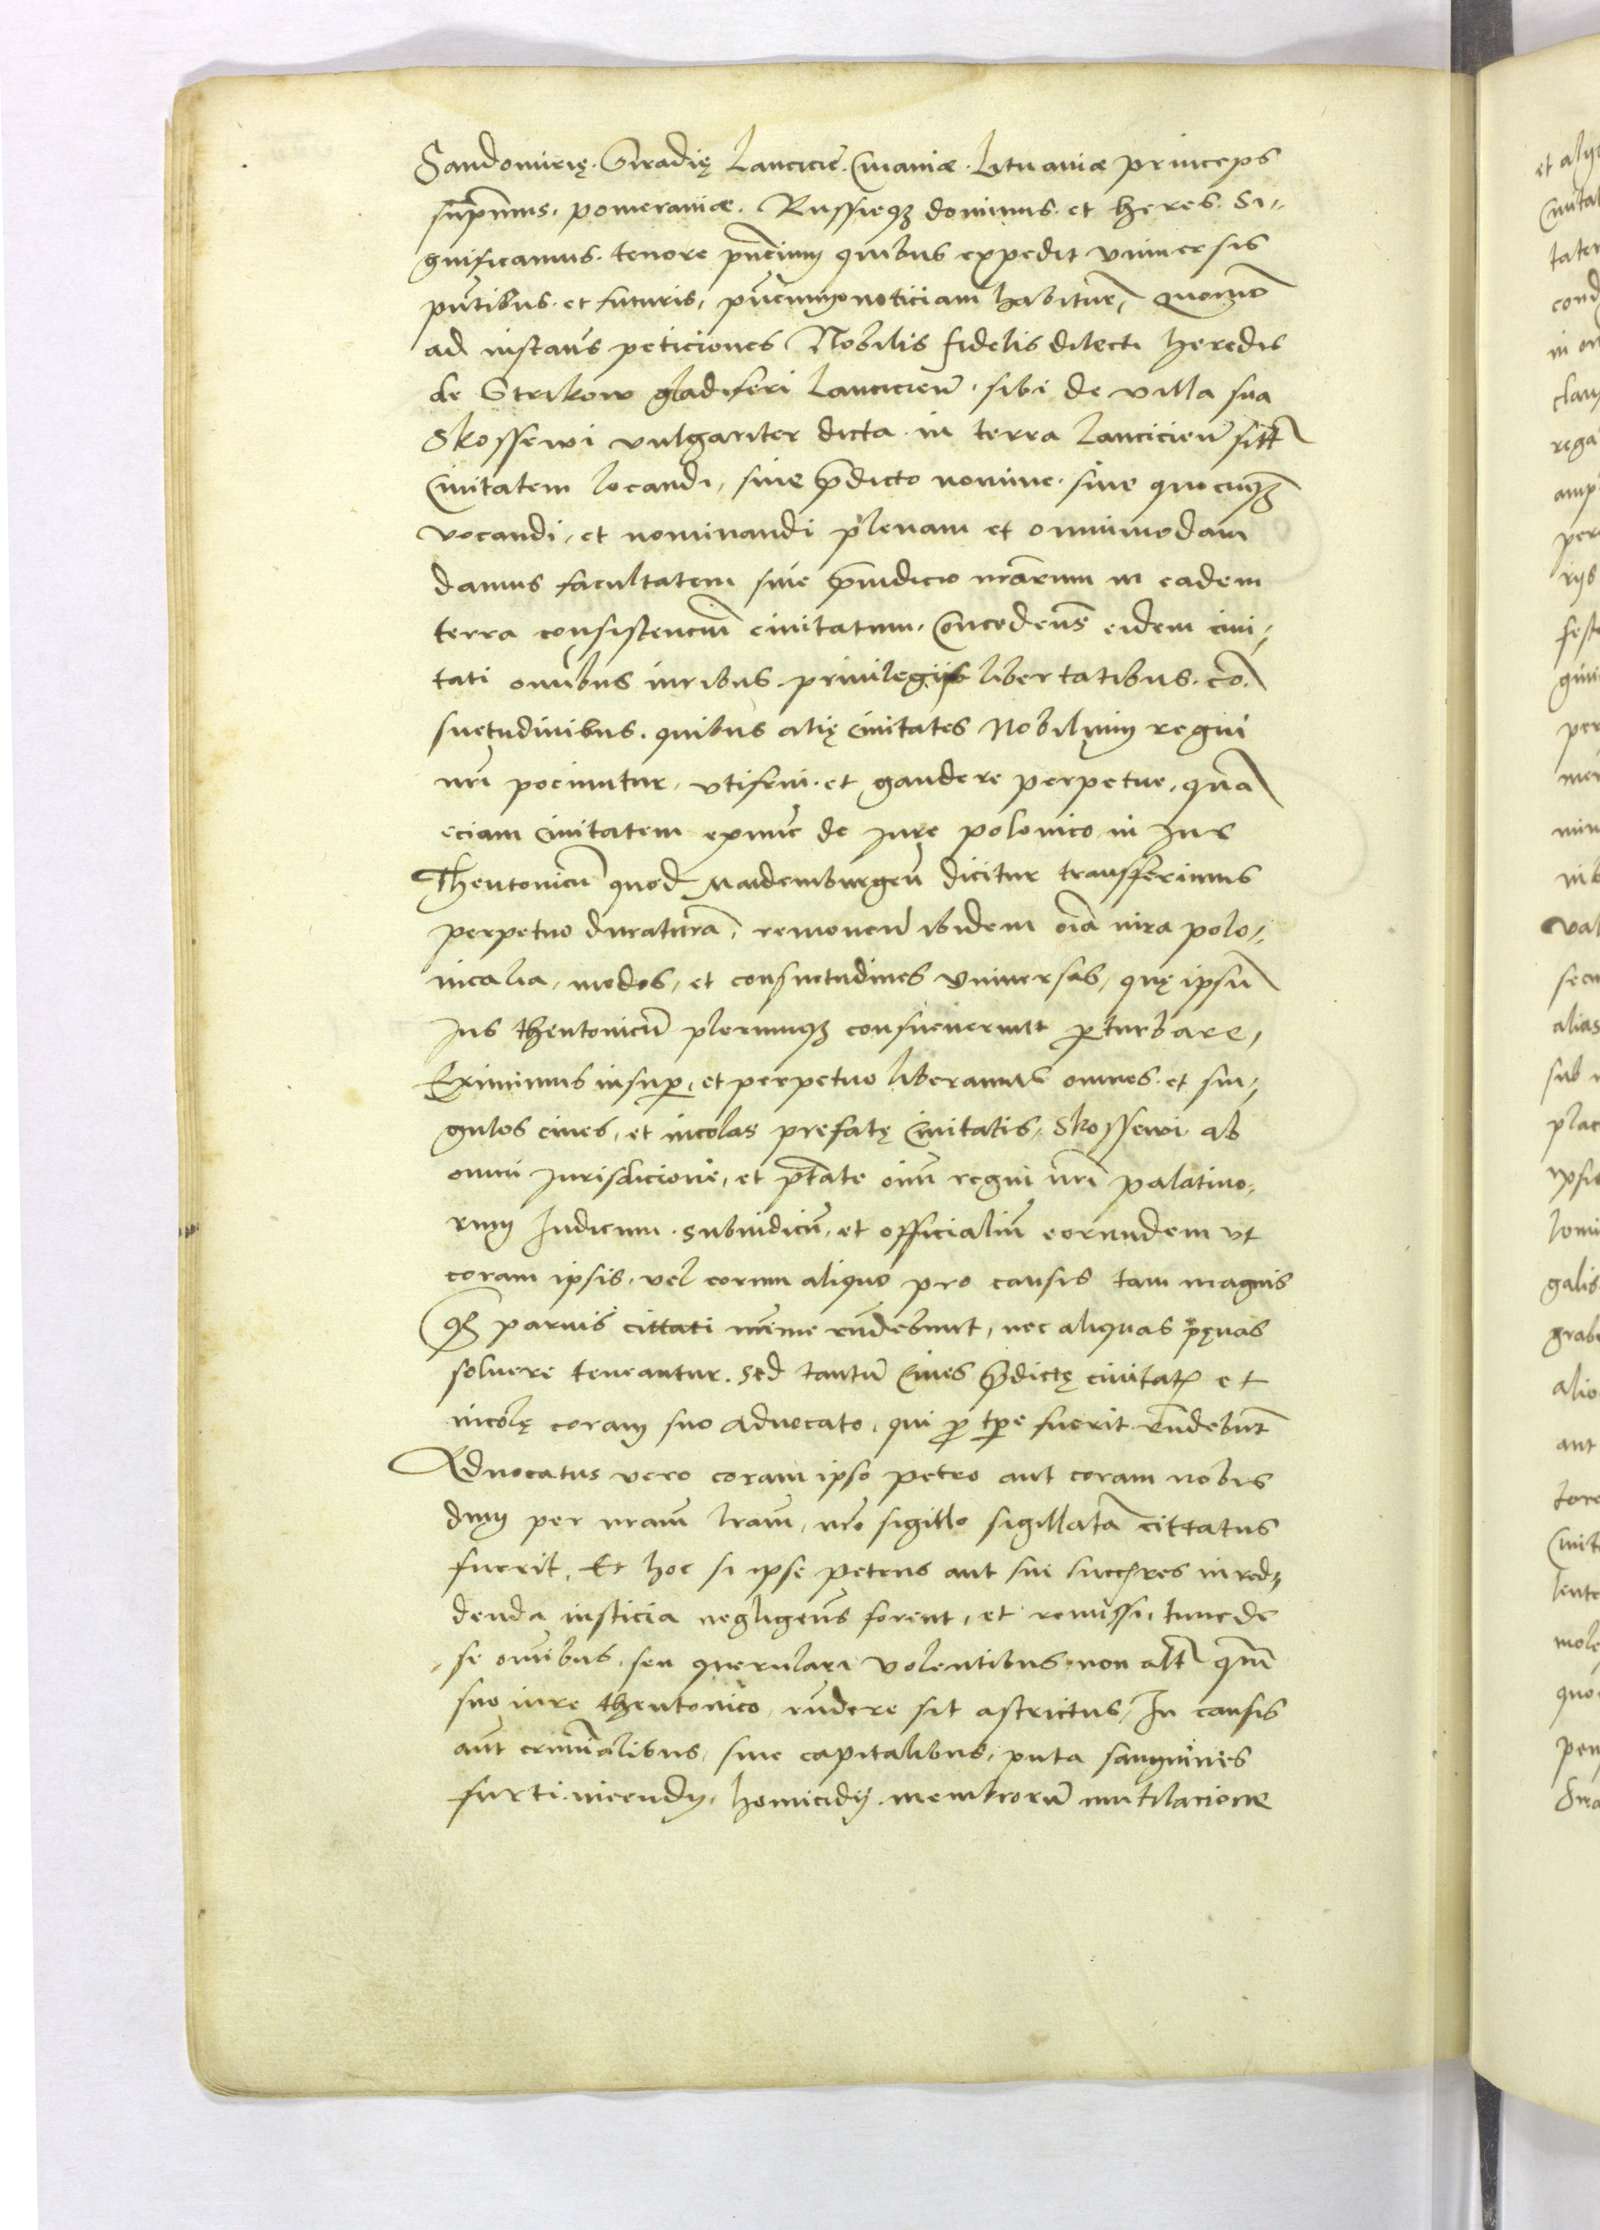 Sandomirię. Siradię Lancicię. Cuiauiæ. Lituaniæ princeps
supmus. pomeraniæ. Russieqz dominus. et heres. Si-
gnificamus. tenore pñcium quibus expedit vniuersis
pñtibus. et futuris, pñcium noticiam habituř, Quomõ
ad instans peticiones Nobilis fidelis dilecti heredis
de Strikow gladiferi Lancicieñ. sibi de villa sua
Skossewi vulgariter dicta in terra Lancicieñ sitt
Ciuitatem locandi, siue p̃dicto nomine. siue quocunqz
vocandi, et nominandi plenam et omnimodam
damus facultatem siue p̃iudicio nrãrum in eadem
terra consistenciũ ciuitatum. Concedens eidem ciui-
tati omĩbus iuribus. priuilegijs libertatibus. cõ
suetudinibus. quibus alię ciuitates Nobilium regni
nrĩ pociuntur, vtifrui. et gaudere perpetue, quã
eciam ciuitatem exnũc de Iure polonico in Ius
Theutonicũ quod Maidemburgeñ dicitur transferimus
perpetuo duraturã, remoueñ ibidem oĩa iura polo-
nicalia, modos, et consuetudines vniuersas, quę ipsũ
Ius theutonicũ plerumqz consueuerunt pturbare,
Eximimus insup, et perpetuo liberamus omnes. et sin-
gulos ciues, et incolas prefatę Ciuitatis, Skossewi ab
omni Iurisdicione, et ptãte oĩm regni nrĩ palatino-
rum Iudicum. subiudicũ, et officialiũ eorundem vt
coram ipsis, vel eorum aliquo pro causis tam magnis
qz paruis cittati mĩme rñdebunt, nec aliquas pęnas
soluere teneantur. Sed tantũ Ciues p̃dictę ciuitatz et
incolę coram suo Aduocato, qui p̃ tpe fuerit rñdebũt
Aduocatus vero coram ipso petro aut coram nobis
dum per nrãm lrãm, nrõ sigillo sigillatã cittatus
fuerit, Et hoc si ipse Petrus aut sui succẽres in red-
denda iusticia negligeñs forent, et remissi, tunc de
se omĩbus, seu querulari volentibus non altr̃ quam
suo iure theutonico, rñdere sit astrictus, In causis
aũt crimĩalibus, siue capitalibus, puta sanguinis
furti. incendij, homicidij. membrorũ mutilacione